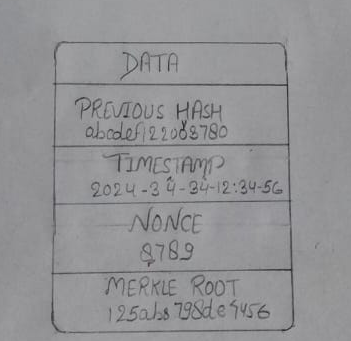 DATA
PREVIOUS HASH
abcdef122083780
TIMESTAMP
2024-34-34-12:34-56
NONCE
8789
MERKLE ROOT